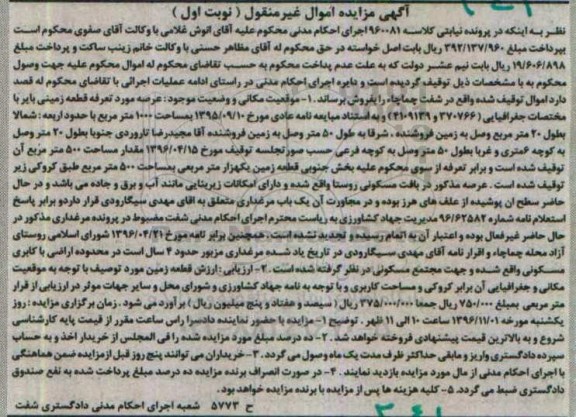 آگهی مزایده اموال غیرمنقول ( نوبت اول )
نظر به اینکه در پرونده نیابتی کلاسه ۹۶۰۰۸۱ اجرای احکام مدنی محکوم علیه آقای انوش غلامی با وکالت آقای صفوی محکوم است
بپرداخت مبلغ ۳۹۲/۱۳۷/۹۶۰ ریال بابت اصل خواسته در حق محکوم له آقای مظاهر حسنی با وکالت خانم زینب ساکت و پرداخت مبلغ
۱۹/۶۰۶/۸۹۸ ریال بابت نیم عشر دولت که به علت عدم پداخت محکوم به حسب تقاضای محکوم له اموال محکوم علیه جهت وصول
محکوم به با مشخصات ذیل توقیف گردیده است و دایره اجرای احکام مدنی در راستای ادامه عملیات اجرائی با تقاضای محکوم له قصد
دارد اموال توقیف شده واقع در شفت چماچاه را بفروش برساند. ۱- موقعیت مکانی و وضعیت موجود : عرصه مورد تعرفه قطعه زمینی بایر با
مختصات جغرافیایی (۳۷۰۷۶۶ و ۴۱۰۹۱۳۹) و به استناد مبایعه نامه عادی مورخ ۱۳۹۵/۰۹/۱۰ بمساحت ۱۰۰۰ متر مربع با حدود اربعه : شمالا
بطول ۲۰ متر وصل به زمین فروشنده ، شرقا به طول ۵۰ متر وصل به زمین فروشنده آقا مجیدرضا تاروردی جنوبا بطول ۲۰ متر وصل
به کوچه ۶متری و غربا بطول ۵۰ متر وصل به کوچه فرعی حسب صورتجلسه توقیف مورخ ۱۳۹۶/۰۴/۱۵ مقدار مساحت ۵۰۰ متر مربع آن
توقیف شده است و برابر تعرفه از سوی محکوم علیه بخش جنوبی قطعه زمین یکهزار متر مربعی بمساحت ۵۰۰ متر مربع طبق کروکی زیر
توقیف شده است . عرصه مذکور در بافت مسکونی روستا واقع شده و دارای امکانات زیربنایی مانند آب و برق و جاده می باشد و در حال
حاضر سطح آن پوشیده از علف های هرز بوده و در مجاورت آن یک باب مرغداری متعلق به اقای مهدی سیگارودی قرار دارد و برابر پاسخ
استعلام نامه شماره ۹۶/۶۲۵۸۲ مدیریت جهاد کشاورزی به ریاست محترم اجرای احکام مدنی شفت مضبوط در پرونده مرغداری مذکور در
حال حاضر غیرفعال بوده و اعتبار آن به اتمام رسیده و تجدید نشده است . همچنین برابر نامه مورخ ۱۳۹۶/۰۴/۲۱ شورای اسلامی روستای
آزاد محله چماچاه و اقرار نامه آقای مهدی سیگارودی در تاریخ یاد شده مرغداری مزبور حدود ۴ سال است در محدوده اراضی با کابری
مسکونی واقع شده و جهت مجتمع مسکونی در نظر گرفته شده است . ۲- ارزیابی : ارزش قطعه زمین مورد توصیف با توجه به موقعیت
مکانی و جغرافیایی آن برابر کروکی و مساحت کاربری و با توجه به نامه جهاد کشاورزی و شورای محل و سایر جهات موثر در ارزیابی از قرار
متر مربعی بمبلغ ۷۵۰/۰۰۰ ریال جمعا ۳۷۵/۰۰۰/۰۰۰ ریال ( سیصد و هفتاد و پنج میلیون ریال ) برآورد می شود . زمان برگزاری مزایده : روز
یکشنبه مورخه ۱۳۹۶/۱۱/۰۱ ساعت ۱۰ الی ۱۱ ظهر . توضیح ۱- مزایده با حضور نماینده دادسرا راس ساعت مقرر از قیمت پایه کارشناسی
شروع و به بالاترین قیمت پیشنهادی فروخته خواهد شد . ۲- ده درصد مبلغ مورد مزایده شده را فی المجلس از خریدار اخذ و به حساب
سپرده دادگستری واریز و مابقی حداکثر ظرف مدت یک ماه وصول می گردد . ۳- خریداران می توانند پنج روز قبل از مزایده ضمن هماهنگی
با اجرای احکام مدنی از مال مورد مزایده بازدید نمایند . ۴- در صورت انصراف برنده مزایده ده درصد مبلغ پرداخت شده به نفع صندوق
دادگستری ضبط می گردد. ۵- کلیه هزینه ها پس از مزایده با برنده مزایده خواهد بود.
ح ۵۷۷۳ شعبه اجرای احکام مدنی دادگستری شفت